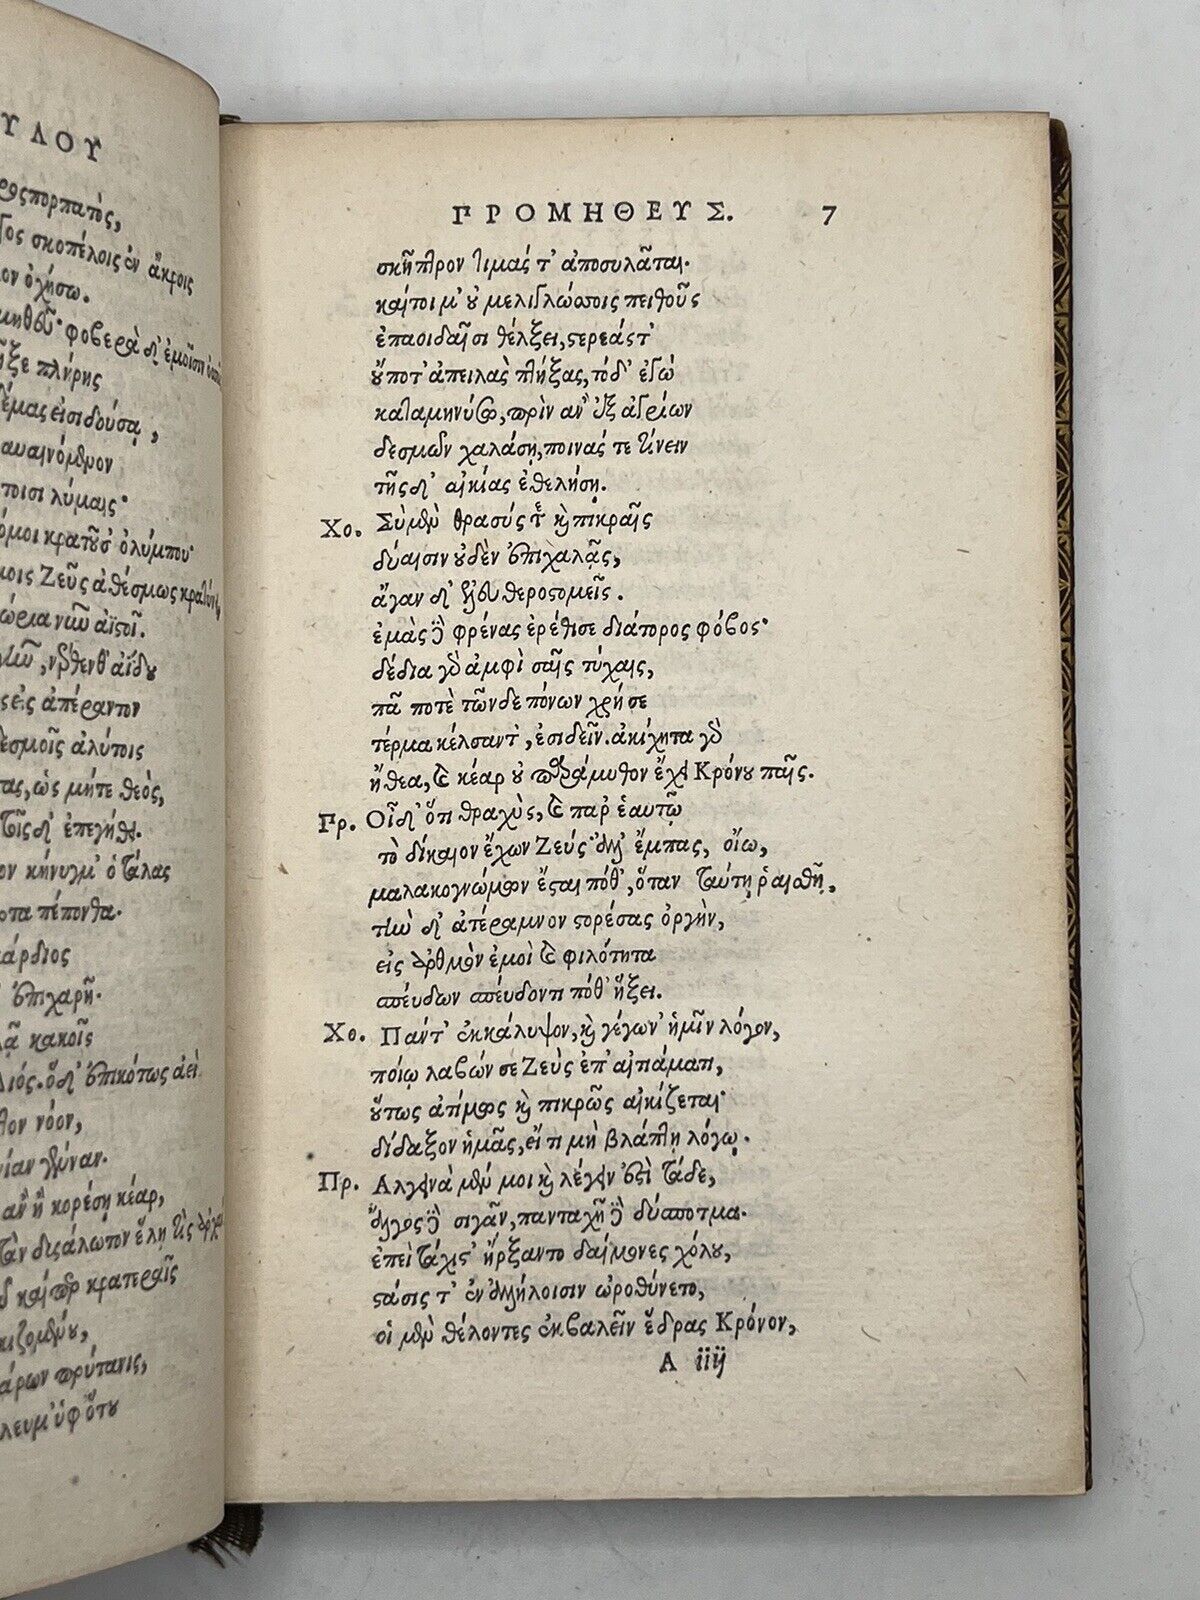 ΥΛΟΥ
σκοπέλοις ἐν ἄκροις
ὀχήσω.
φοβερὰ δ' ἐμοῖσιν ὄσσοις
πλήρης
εἰσιδούσᾳ,
αυαινόμενον
λύμαις·
κρατοῦσ' ὀλύμπου·
Ζεὺς ἀθέσμως κρατύνει,
ἀΐδου
εἰς ἀπέραντον
δεσμοῖς ἀλύτοις
ὡς μήτε θεὸς,
ἐπεγήθει.
κίνυγμ' ὁ τάλας
πέπονθα.
κάρδιος
ἐπιχαρῆ.
κακοῖς
ἐπικότως ἀεὶ
νόον,
ἂν ἢ κορέσῃ κέαρ,
δυσάλωτον ἕλῃ τις ἀρχάν
κρατεραῖς
πρύτανις,
ὑφ' ὅτου
ΠΡΟΜΗΘΕΥΣ. 7
σκῆπτρον τιμάς τ' ἀποσυλᾶται.
καίτοι μ' οὐ μελιγλώσσοις πειθοῦς
ἐπαοιδαῖσι θέλξει, στερεάς τ'
οὔποτ' ἀπειλὰς πτήξας, τόδ' ἐγὼ
καταμηνύσω, πρὶν ἂν ἐξ ἀγρίων
δεσμῶν χαλάσῃ, ποινάς τε τίνειν
τῆς δ' αἰκίας ἐθελήσῃ.
Χο. Σὺ μὲν θρασύς τε καὶ πικραῖς
δύαισιν οὐδὲν ἐπιχαλᾷς,
ἄγαν δ' ἐλευθεροστομεῖς.
ἐμὰς δὲ φρένας ἐρέθισε διάτορος φόβος·
δέδια γὰρ ἀμφὶ σαῖς τύχαις,
πᾶ ποτὲ τῶνδε πόνων χρή σε
τέρμα κέλσαντ', ἐσιδεῖν. ἀκίχητα γὰρ
ἤθεα, καὶ κέαρ οὐ παράμυθον ἔχει Κρόνου παῖς.
Πρ. Οἶδ' ὅτι θραχὺς, καὶ παρ' ἑαυτῷ
τὸ δίκαιον ἔχων Ζεύς· ἀλλ' ἔμπας, οἴω,
μαλακογνώμων ἔσται πόθ', ὅταν ταύτῃ ῥαισθῇ,
τὴν δ' ἀτέραμνον στορέσας ὀργὴν,
εἰς ἀρθμὸν ἐμοὶ καὶ φιλότητα
σπεύδων σπεύδοντι πόθ' ἥξει.
Χο. Πάντ' ἐκκάλυψον, καὶ γέγων' ἡμῖν λόγον,
ποίῳ λαβών σε Ζεὺς ἐπ' αἰτιάματι,
οὕτως ἀτίμως καὶ πικρῶς αἰκίζεται·
δίδαξον ἡμᾶς, εἴ τι μὴ βλάπτῃ λόγῳ.
Πρ. Ἀλγεινὰ μέν μοι καὶ λέγειν ἐστὶ τάδε,
ἄλγος δὲ σιγᾶν, πανταχῆ δὲ δύσποτμα.
ἐπεὶ τάχιστ' ἤρξαντο δαίμονες χόλου,
στάσις τ' ἐν ἀλλήλοισιν ὠροθύνετο,
οἱ μὲν θέλοντες ἐκβαλεῖν ἕδρας Κρόνον,
A iiij